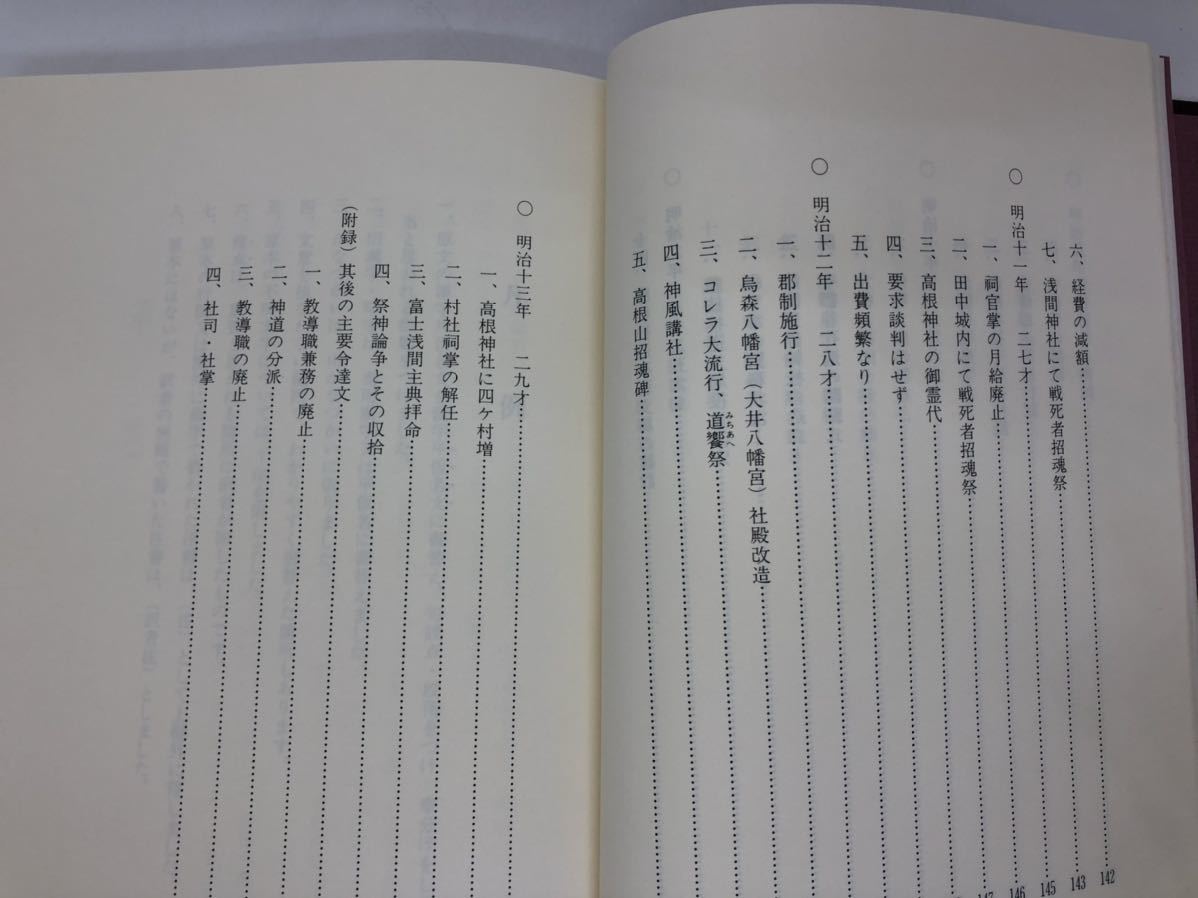 六、経費の減額 142
七、浅間神社にて戦死者招魂祭 143
○ 明治十一年 二七才 145
一、祠官掌の月給廃止 146
二、田中城内にて戦死者招魂祭
三、高根神社の御霊代
四、要求談判はせず
五、出費頻繁なり
○ 明治十二年 二八才
一、郡制施行
二、烏森八幡宮（大井八幡宮）社殿改造
三、コレラ大流行、道饗祭
みちあへ
四、神風講社
五、高根山招魂碑
○ 明治十三年 二九才
一、高根神社に四ケ村増
二、村社祠掌の解任
三、富士浅間主典拝命
四、祭神論争とその収拾
（附録）其後の主要令達文
一、教導職兼務の廃止
二、神道の分派
三、教導職の廃止
四、社司・社掌